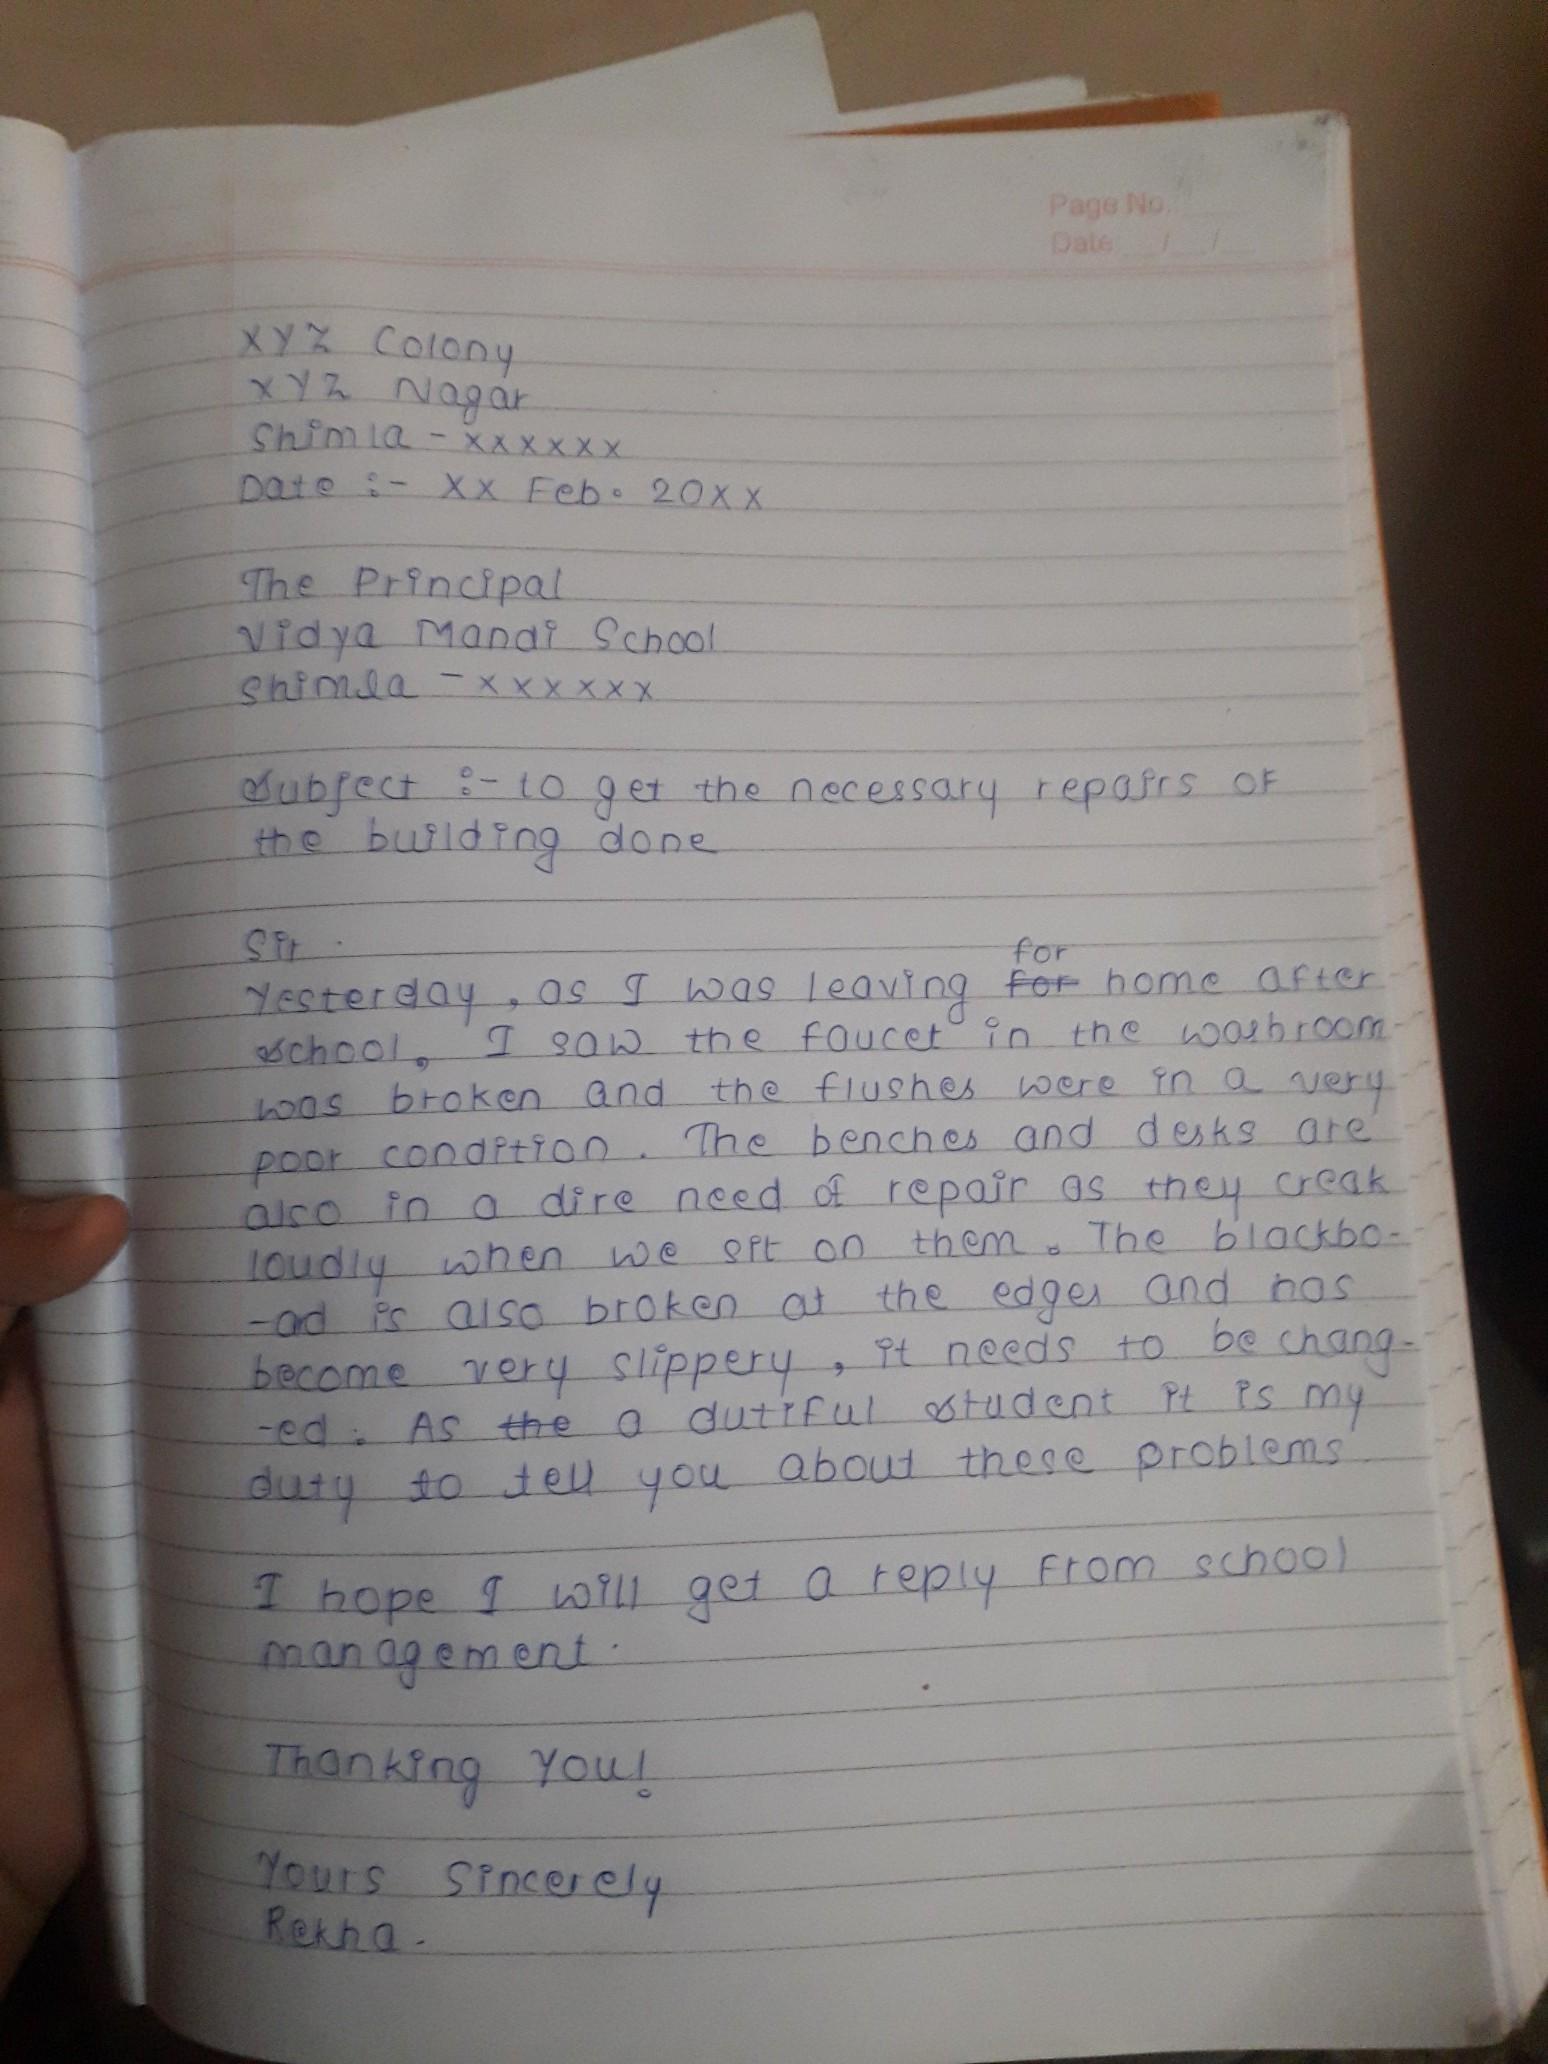 Page No.
Date __/__/__
XYZ Colony
XYZ Nagar
Shimla - xxxxxx
Date :- XX Feb. 20XX
The Principal
Vidya Mandi School
Shimla - xxxxxx
Subject :- to get the necessary repairs of
the building done
Sir.
for
Yesterday, as I was leaving for home after
school, I saw the faucet in the washroom
was broken and the flushes were in a very
poor condition. The benches and desks are
also in a dire need of repair as they creak
loudly when we sit on them. The blackbo-
-ad is also broken at the edges and has
become very slippery, it needs to be chang-
-ed. As the a dutiful student it is my
duty to tell you about these problems
I hope I will get a reply from school
management.
Thanking You!
Yours Sincerely
Rekha.